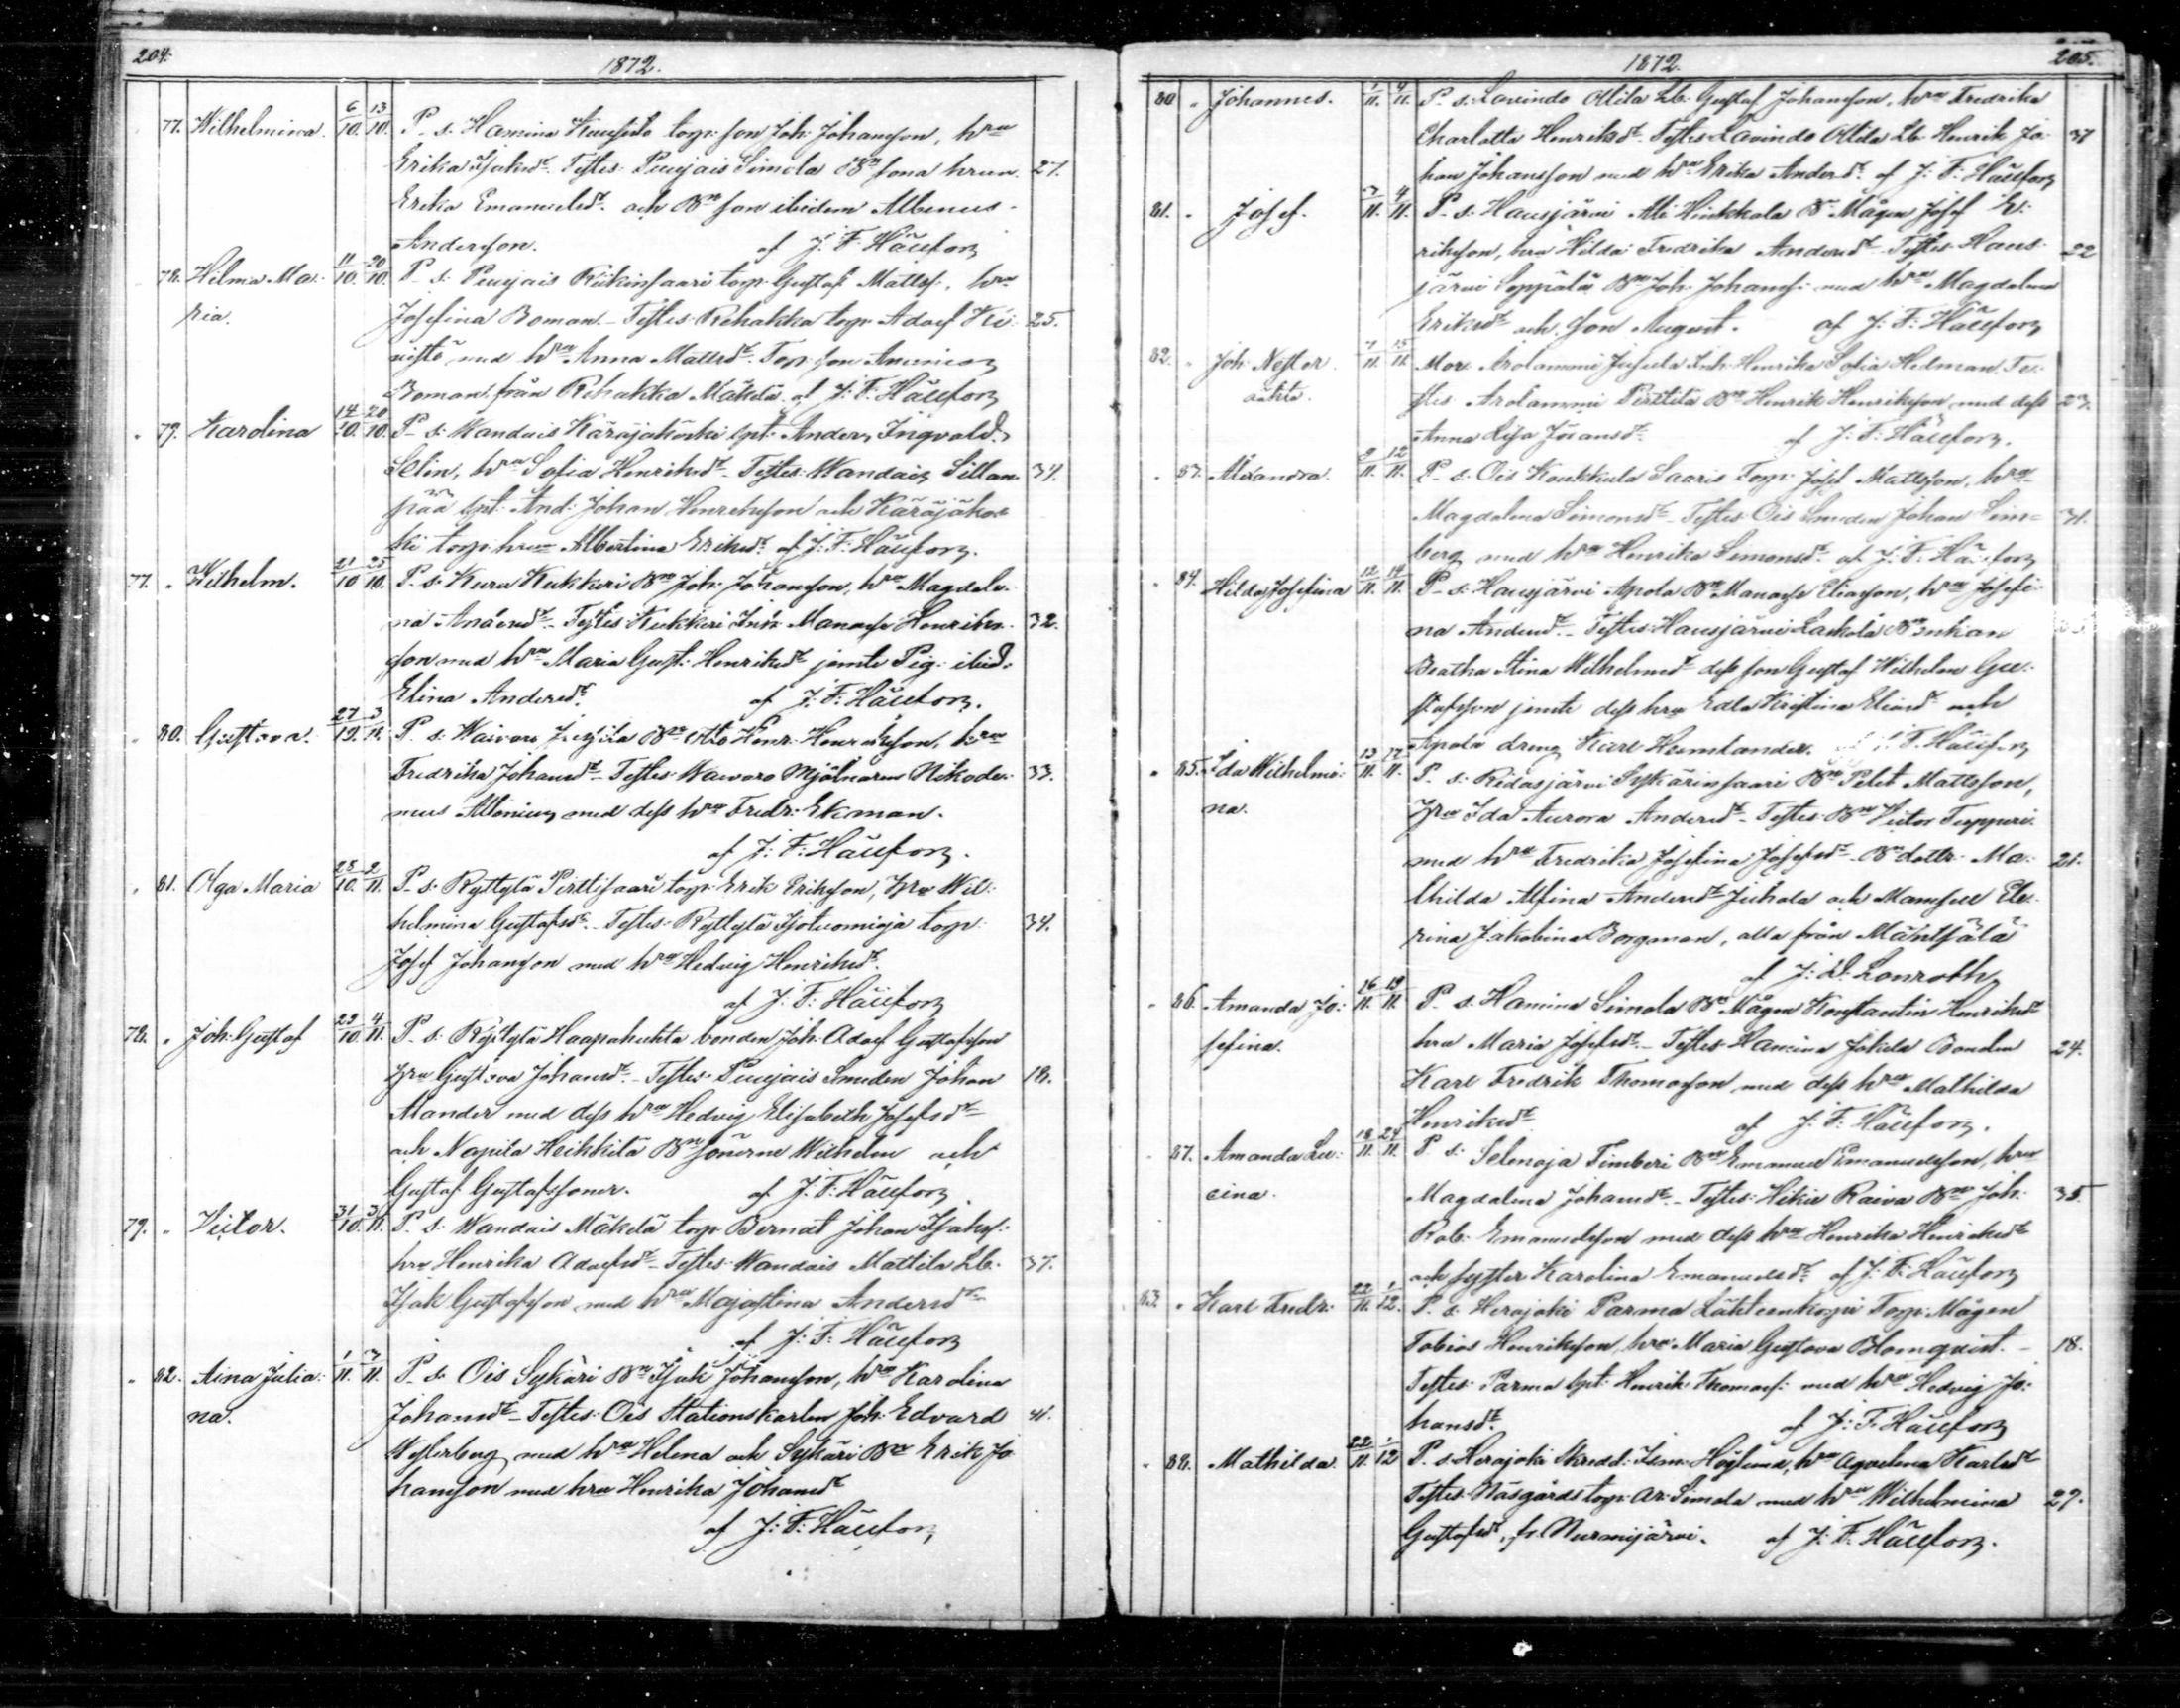 204.
1872.
77. Wilhelmina. 6/10. 13/10. P. s: Hamina Kuusisto torp: son Joh: Johansson, hru
Erika Isaksdr. Testes: Puujais Simola Bdn sona hrun 27.
Erika Emanuelsdr. och Bdn son ibidem Albinus
Andersson. af J: F: Hällfors
78. Hilma Ma- 11/10. 20/10. P. s: Puujais torp: Gustaf Mattss:, hru
ria. Josefina Boman. Testes: Rehakka torp: Adolf Ki- 25.
vistö med hru Anna Mattsdr. Torp: son
Boman från Rehakka Mäkelä af J: F: Hällfors
" 79. Karolina 14/10. 20/10. P. s: Wandais Käräjäkoski Spt: Anders Ingvald
Selin, hru Sofia Henriksdr. Testes: Wandais Sillan- 34.
pää Spt: And: Johan Henriksson och Käräjäkos-
ki torp: hrun Albertina Eriksdr. af J: F: Hällfors.
77. " Wilhelm. 21/10 25/10. P. s: Kuru Kukkuri Bdn Joh: Johansson, hru Magdale-
na Andersdr. Testes: Kukkuri Inh: Manasse Henriks- 32.
son med hru Maria Gust: Henriksdr jemte Pig: ibid:
Elina Andersdr. af J: F: Hällfors.
" 80. Gustava. 27/10. 3/11. P. s: Waiwaro Jussila Bdn Otto Henr: Henriksson, hru
Fredrika Johansdr. Testes: Waiwaro Mjölnaren Nikode- 33.
mus Allenius med dess hru Fredr: Ekman.
af J: F: Hällfors.
" 81. Olga Maria 28/10. 2/11. P. s: Ryttylä Pirttisaari torp: Erik Eriksson, Hru Wil-
helmina Gustafsdr. Testes: Ryttylä torp: 34.
Josef Johansson med hru Hedvig Henriksdr.
af J: F: Hällfors
78. " Joh: Gustaf 29/10 4/11. P. s: Ryttylä Haapahuhta bonden Joh: Adolf Gustafsson
Hru Gustava Johansdr. Testes: Puujais Smeden Johan 18.
Mander med dess hru Hedvig Elisabeth Josefsdr
och Napila Heikkilä Bdn sönerne Wilhelm och
Gustaf Gustafssoner. af J: F: Hällfors.
79. " Victor. 31/10. 3/11. P. s: Wandais Mäkelä torp: Bernat Johan Isakss:
hru Henrika Adolfsdr. Testes: Wandais Mattila Lb: 37.
Isak Gustafsson med hru Majastina Andersdr
af J: F: Hällfors
" 82. Aina Julia- 1/11. 3/11. P. s: Ois Sykäri Bdn Isak Johansson, hru Karolina
na. Johansdr. Testes: Ois Stationskarlen Joh: Edvard 41.
Westerberg med hru Helena och Sykäri Bdn Erik Jo
hansson med hru Henrika Johansdr
af J: F: Hällfors
205.
1872.
80 " Johannes. 1/11. 4/11. P. s: Lavindo Ollila Lb: Gustaf Johansson, hru Fredrika
Charlotta Henriksdr. Testes: Lavindo Ollila Lb: Henrik Jo- 37
han Johansson med hru Erika Andersdr. af J: F: Hällfors
81. " Josef. 3/11. 4/11. P. s: Hausjärvi Ali Hirkkala Bdn Mågen Josef Hen-
riksson, hru Hilda Fredrika Andersdr. Testes: Haus- 22
järvi Seppälä Bdn Joh: Johanss: med hru Magdalena
Eriksdr och son August. af J: F: Hällfors
82. " Joh: Nestor 7/11. 15/11. Mor: Arolammi Jussila Inh: Henrika Sofia Hedman. Te-
oäkta. stes Arolammi Pirttilä Bdn Henrik Henriksson med dess 23.
Anna Lisa Johansdr af J: F: Hällfors.
" 83. Alexandra. 9/11. 12/11. P. s: Ois Kaukkula Saaris Torp: Josef Mattsson, hru
Magdalena Simonsdr. Testes: Ois Smeden Johan Lim- 31.
berg med hru Henrika Simonsdr. af J: F: Hällfors
" 84. Hilda Josefina 12/11. 14/11. P. s: Hausjärvi Apola Bdn Manasse Eliasson, hru Josefi-
na Andersdr. Testes: Hausjärvi Laskola Bdn enkan
Beatha Stina Wilhelmsdr dess son Gustaf Wilhelm Gu-
stafsson jemte dess hru Edla Kristina Eliasdr och
Apola dreng Karl Hemlander. af J: F: Hällfors
" 85. Ida Wilhelmi- 13/11. 17/11. P. s: Ridasjärvi Sykärinsaari Bdn Petet Mattsson,
na. Hru Ida Aurora Andersdr. Testes: Bdn Victor Tuppuri
med hru Fredrika Josefina Josefsdr. Bdn dottr: Ma- 21.
thilda Alfina Andersdr Juhola och Mamsell Ele-
rina Jakobina Borgman, alla från Mäntsälä
af J: D: Lönroth
" 86. Amanda Jo- 16/11. 19/11. P. s: Hamina Simola Bdn Mågen Konstantin Henriksdr
sefina. hru Maria Josefsdr. Testes: Hamina Jokela Bonden 24.
Karl Fredrik Thomasson med dess hru Mathilda
Henriksdr. af J: F: Hällfors.
" 87. Amanda Lu- 18/11. 24/11. P. s: Selenoja Timberi Bdn Emanuel Emanuelsson, hru
cina. Magdalena Johansdr. Testes: Hikiä Raiva Bdn Joh: 35.
Rob: Emanuelsson med dess hru Henrika Henriksdr
och syster Karolina Emanuelsdr. af J: F: Hällfors
83. " Karl Fredr: 22/11. 1/12. P. s: Herajoki Parma Lähteenkorpi Torp: Mågen
Tobias Henriksson, hru Maria Gustava Blomqvist. 18.
Testes: Parma Spt: Henrik Thomass: med hru Hedvig Jo-
hansdr. af J: F: Hällfors
" 88. Mathilda. 22/11. 1/12 P. s: Herajoki Skredd: Höglund, hru Agvelina Karlsdr
Testes: Näsgårds torp: Simola med hru Wilhelmina 29.
Gustafsdr, fr. Nurmijärvi. af J: F: Hällfors.